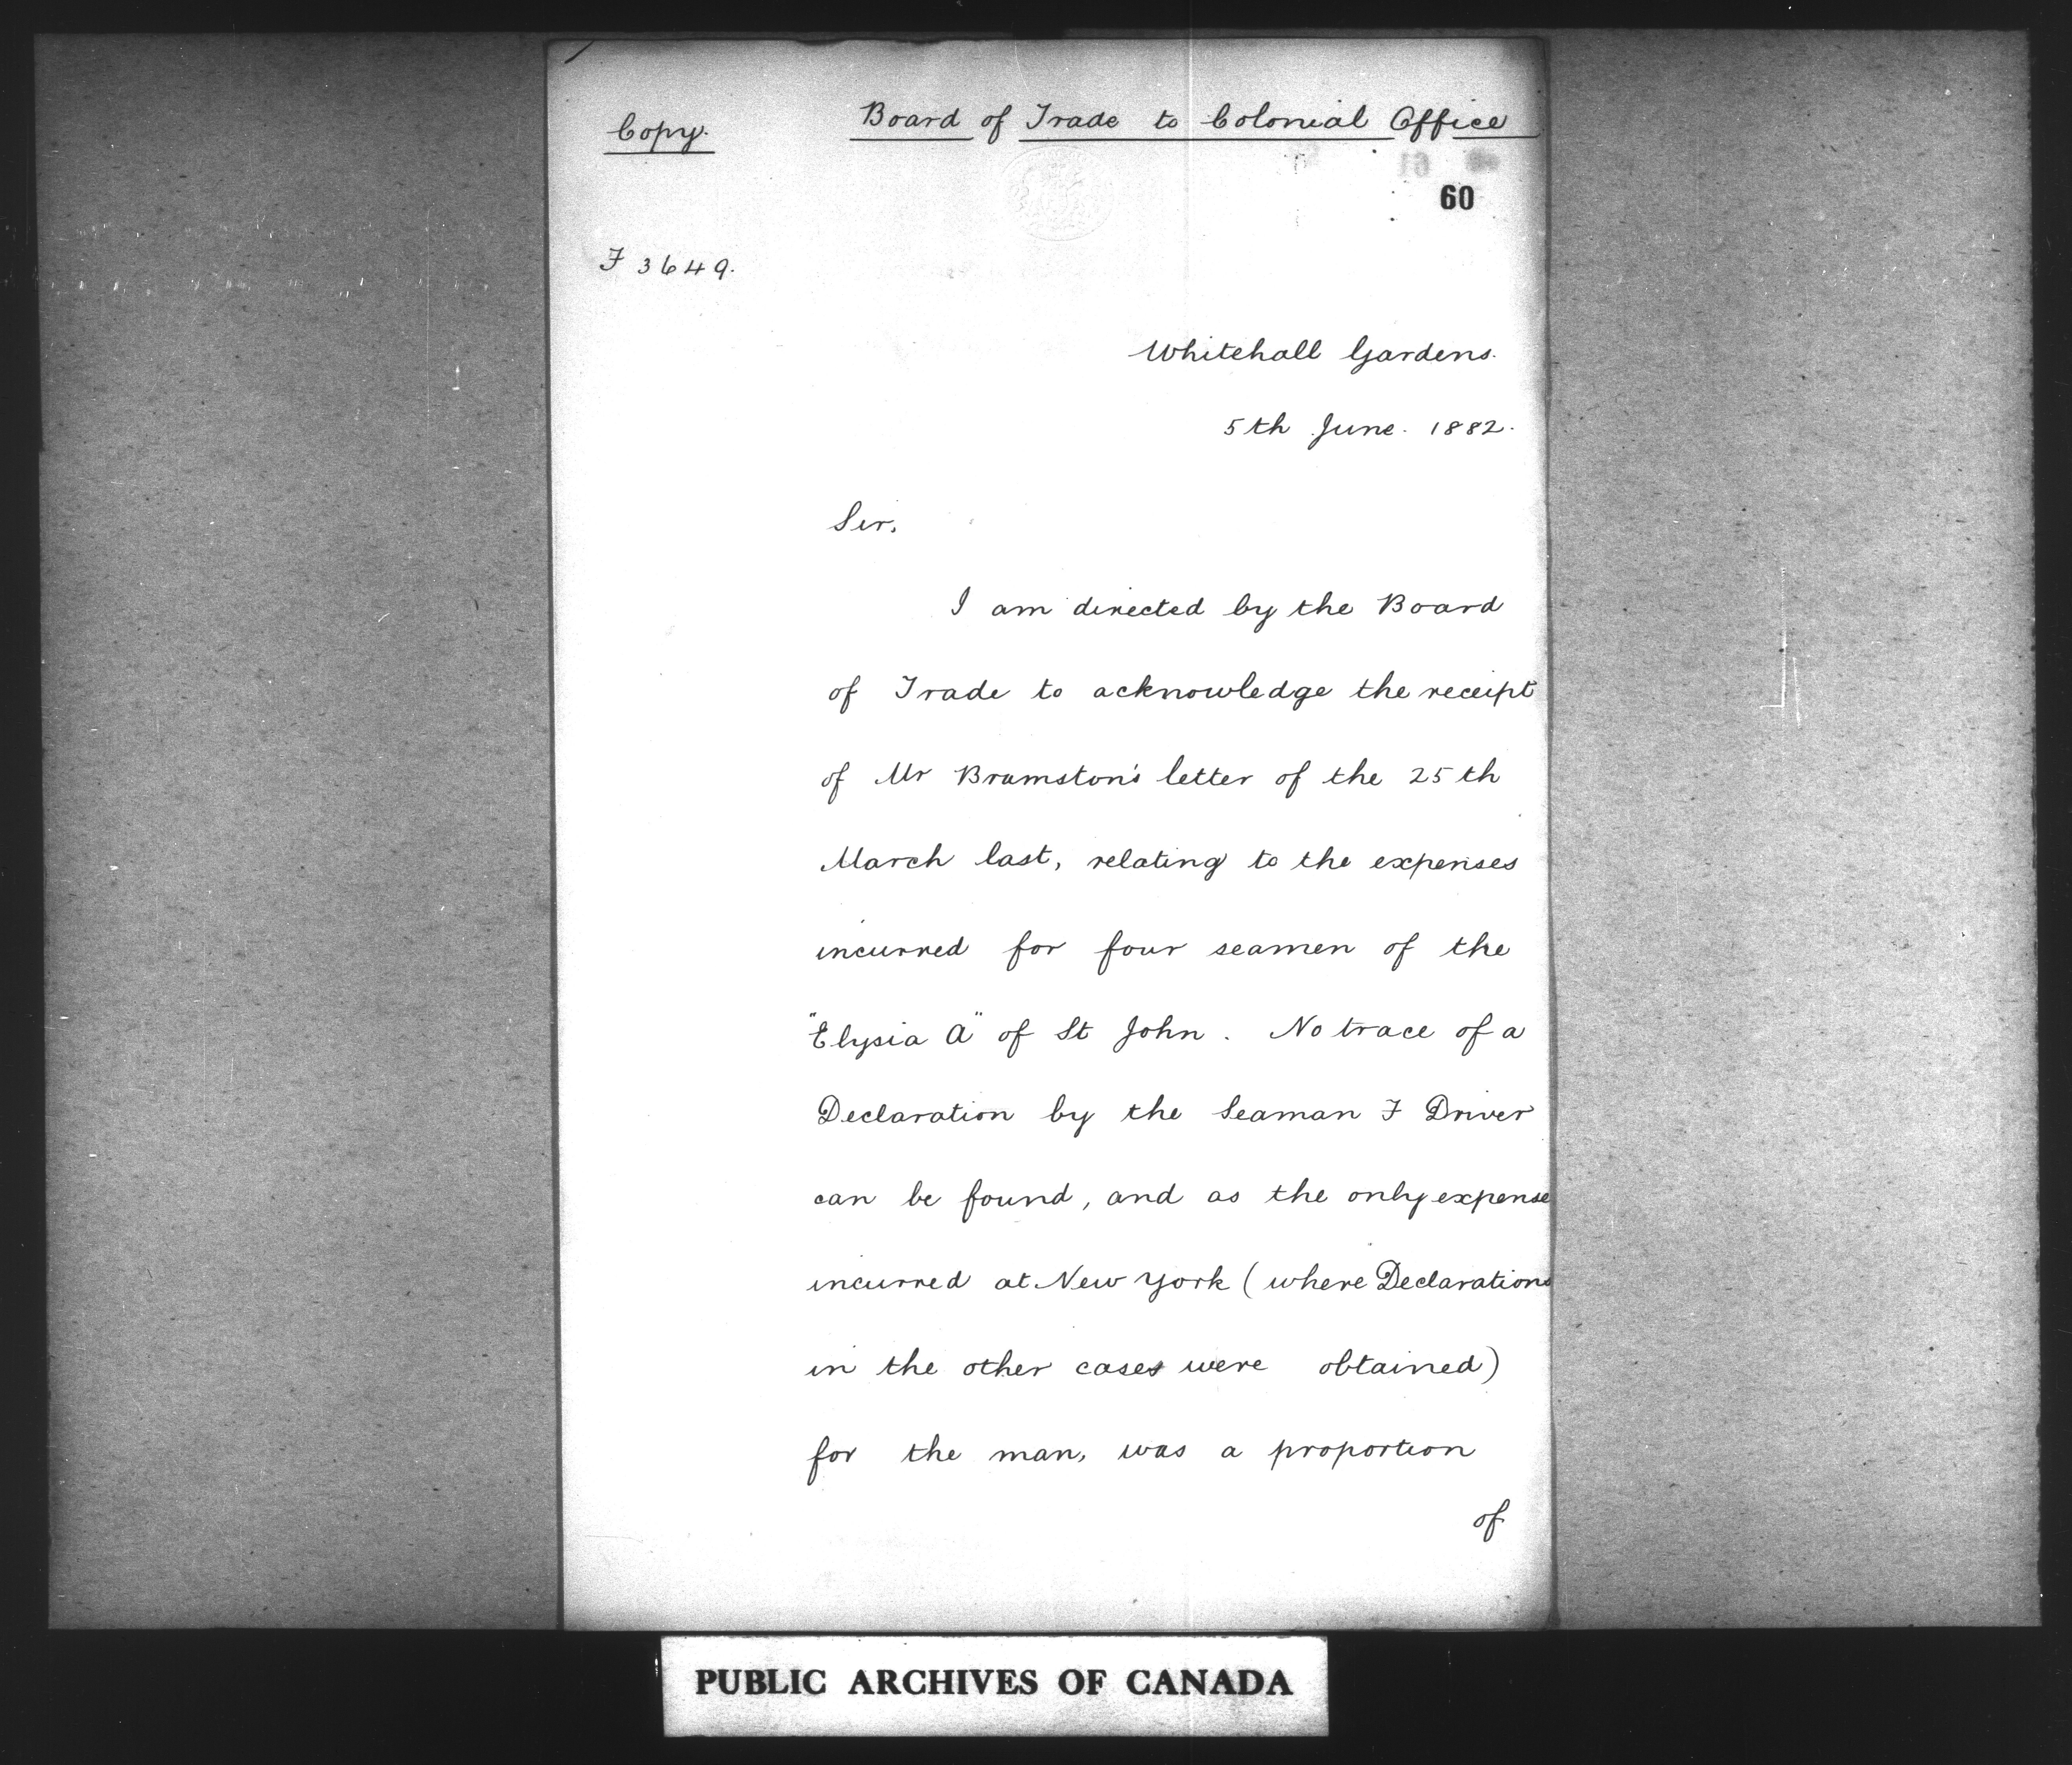 Copy.
Board of Trade to Colonial Office
60
F 3649.
Whitehall Gardens.
5th June. 1882.
Sir,
I am directed by the Board
of Trade to acknowledge the receipt
of Mr Bramston's letter of the 25th
March last, relating to the expenses
incurred for four seamen of the
"Elysia A" of St John. No trace of a
Declaration by the Seaman F Driver
can be found, and as the only expense
incurred at New York (where Declarations
in the other cases were obtained)
for the man, was a proportion
of
PUBLIC ARCHIVES OF CANADA